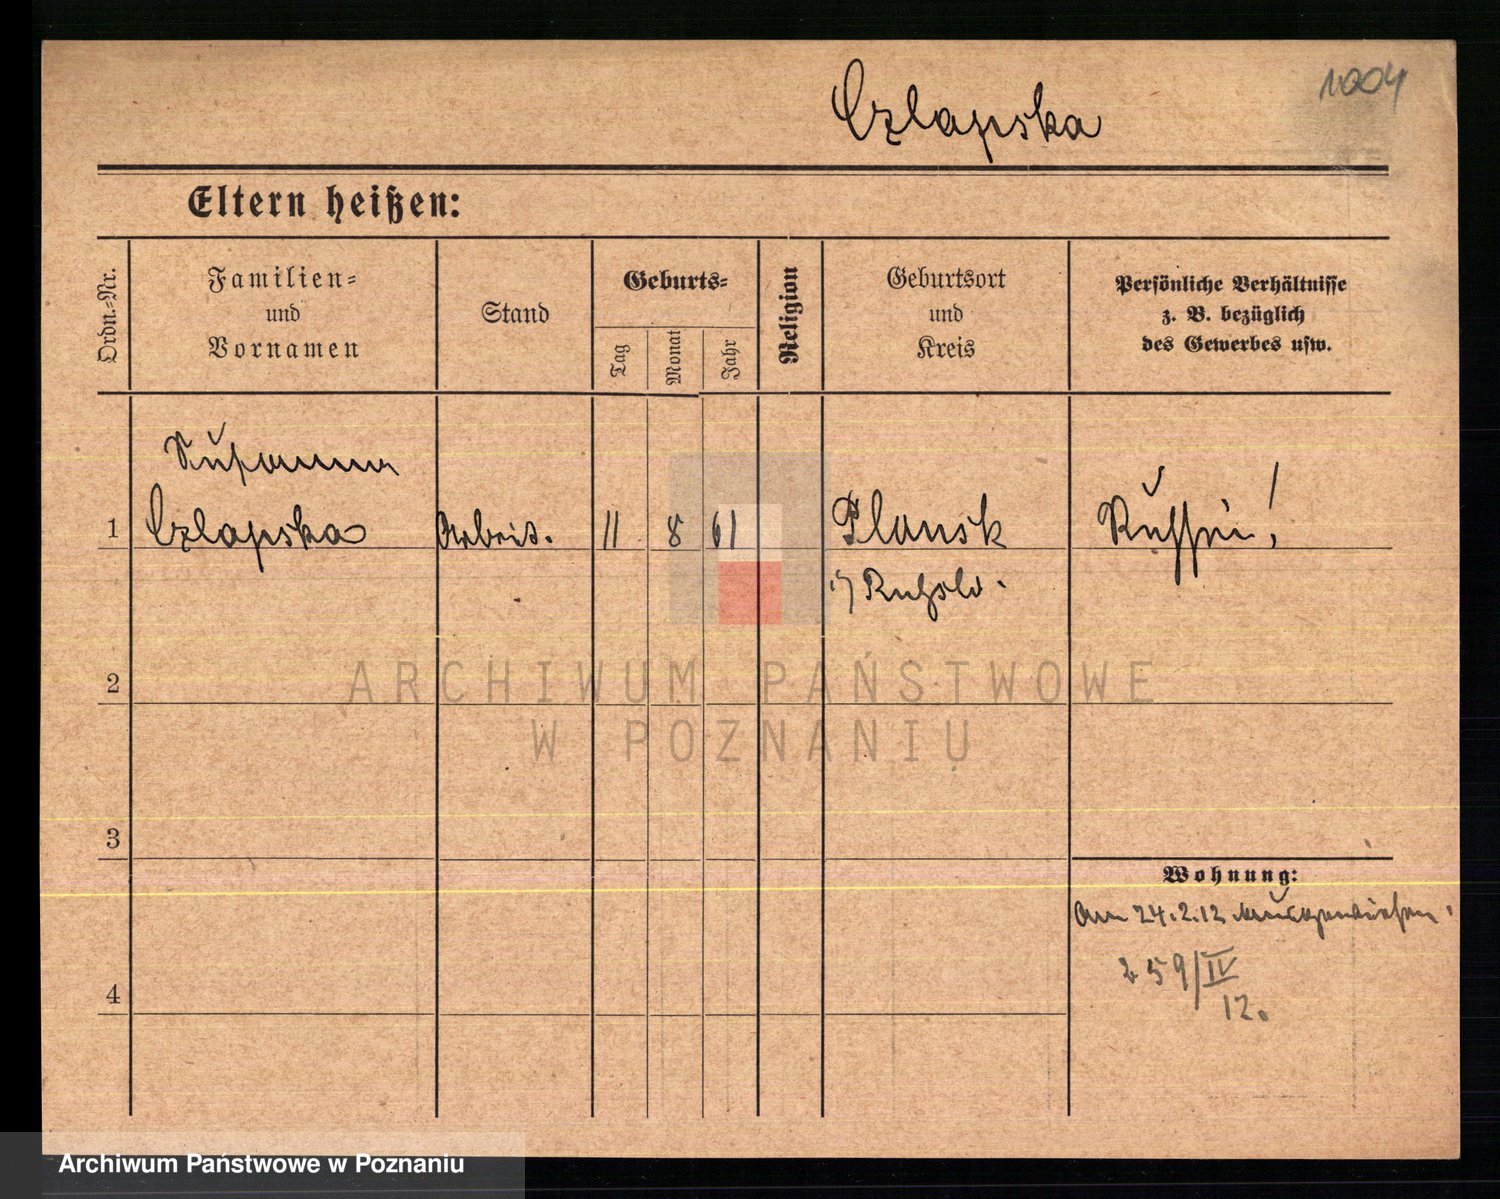 Czlapska
1004
Eltern heißen:
Ordn.-Nr.
Familien-
und
Vornamen
Stand
Geburts-
Tag
Monat
Jahr
Religion
Geburtsort
und
Kreis
Persönliche Verhältnisse
z. B. bezüglich
des Gewerbes usw.
Susanna
1 Czlapska Arbeit. 11 8 61 Plonsk Russin!
i/ Rußld.
2
3
Wohnung:
Am 24.2.12
259/IV
12.
4
ARCHIWUM PAŃSTWOWE
W POZNANIU
Archiwum Państwowe w Poznaniu